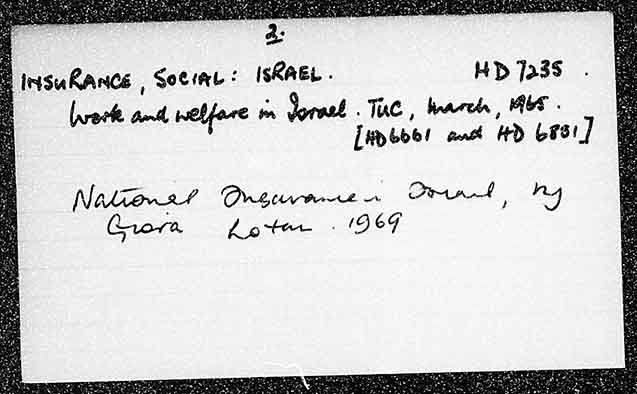 2.
INSURANCE, SOCIAL: ISRAEL. HD 7235.
Work and welfare in Israel. TUC, March, 1965.
[HD6661 and HD 6831]
National Insurance in Israel, by
Giora Lotan. 1969